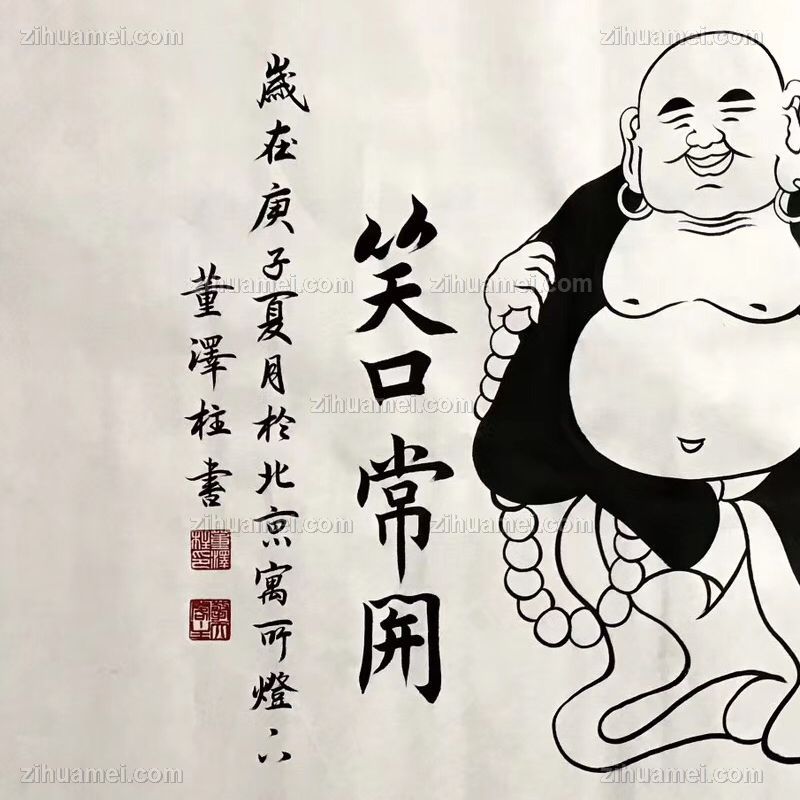 笑口常開
歲在庚子夏月於北京寓所燈下
董澤柱書
董澤柱印
zihuamei.com
zihuamei.com
zihuamei.com
zihuamei.com
zihuamei.com
zihuamei.com
zihuamei.com
zihuamei.com
zihuamei.com